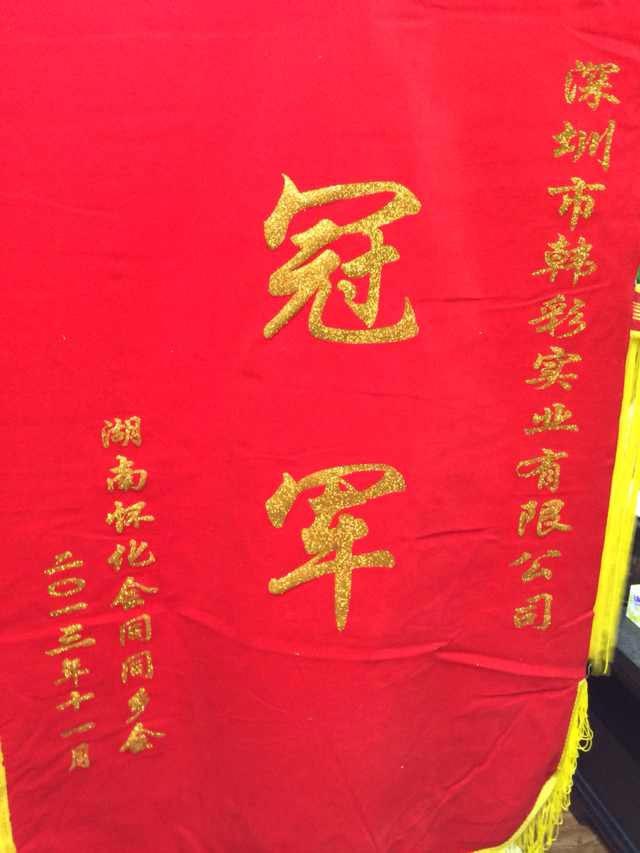 深圳市韩彩实业有限公司
冠军
湖南怀化会同同乡会
二〇一三年十一月